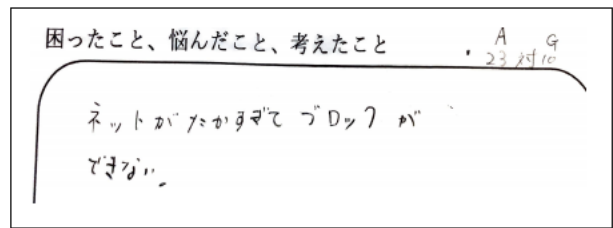 困ったこと、悩んだこと、考えたこと
・ A G
23 対 10
ネットがたかすぎて ブロックが
できない。